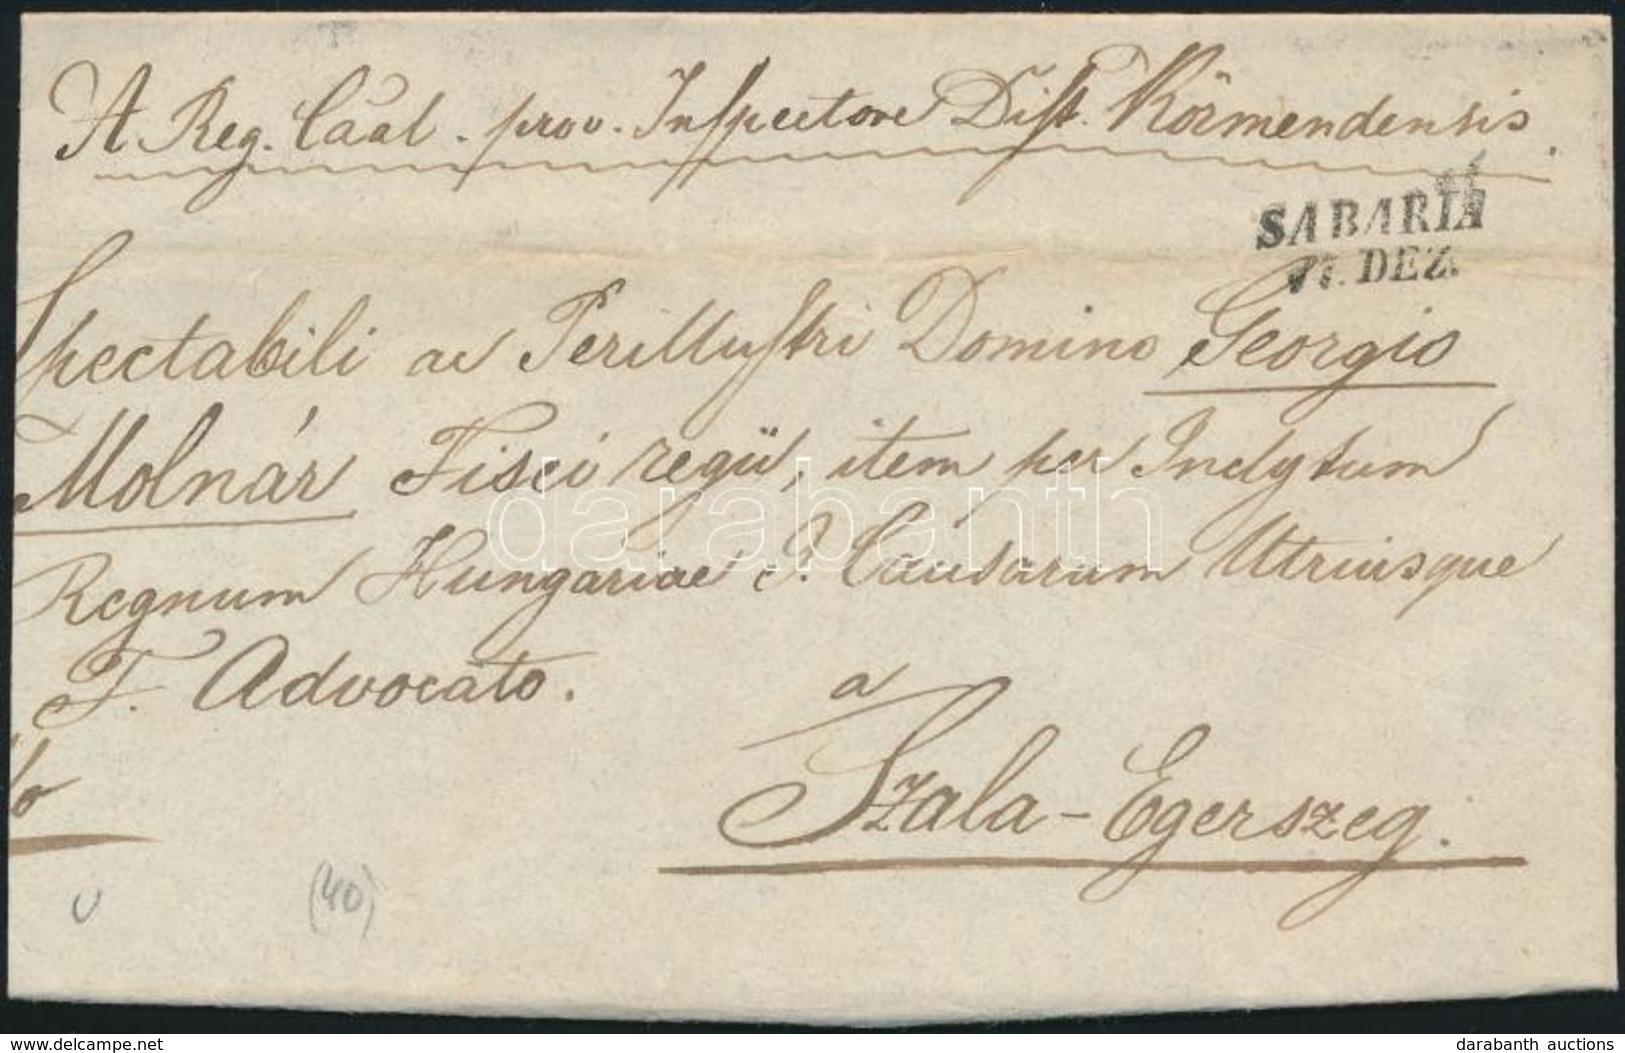 A Reg. Caal. prov. Inspectore Dist. Körmendensis.
SABARIA
17. DEZ.
Spectabili ac Perillustri Domino Georgio
Molnár Fisci regii, item per Inclytum
Regnum Hungariae I. Causarum Utriusque
F. Advocato.
a
Szala-Egerszeg.
(40)
darabanth
www.delcampe.net
darabanth auctions